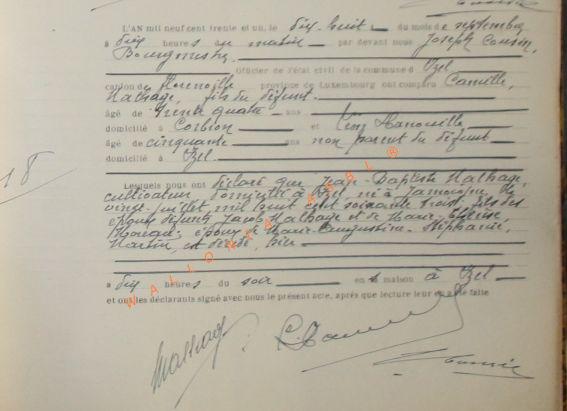 L'AN mil neuf cent trente et un, le dix-huit du mois de septembre
à dix heures du matin par devant nous Joseph
Bourgmestre
Officier de l'état civil de la commune d'Izel
canton de Florenville province de Luxembourg ont comparu Camille
Malhage, fils du défunt
âgé de trente quatre ans
domicilié à Corbion et Léon Hanouille
âgé de cinquante ans non parent du défunt
domicilié à Izel
18
Lesquels nous ont déclaré que Jean-Baptiste Malhage,
cultivateur domicilié à Izel né à Jamoigne, le
vingt juillet mil huit cent soixante trois, fils des
époux défunts Jacob Malhage et de Marie Thérèse,
époux de Marie Augustine Stéphanie,
Martin, est décédé, hier
à dix heures du soir en sa maison à Izel
et ont les déclarants signé avec nous le présent acte, après que lecture leur en a été faite
WALLONIA ASBL
Malhage